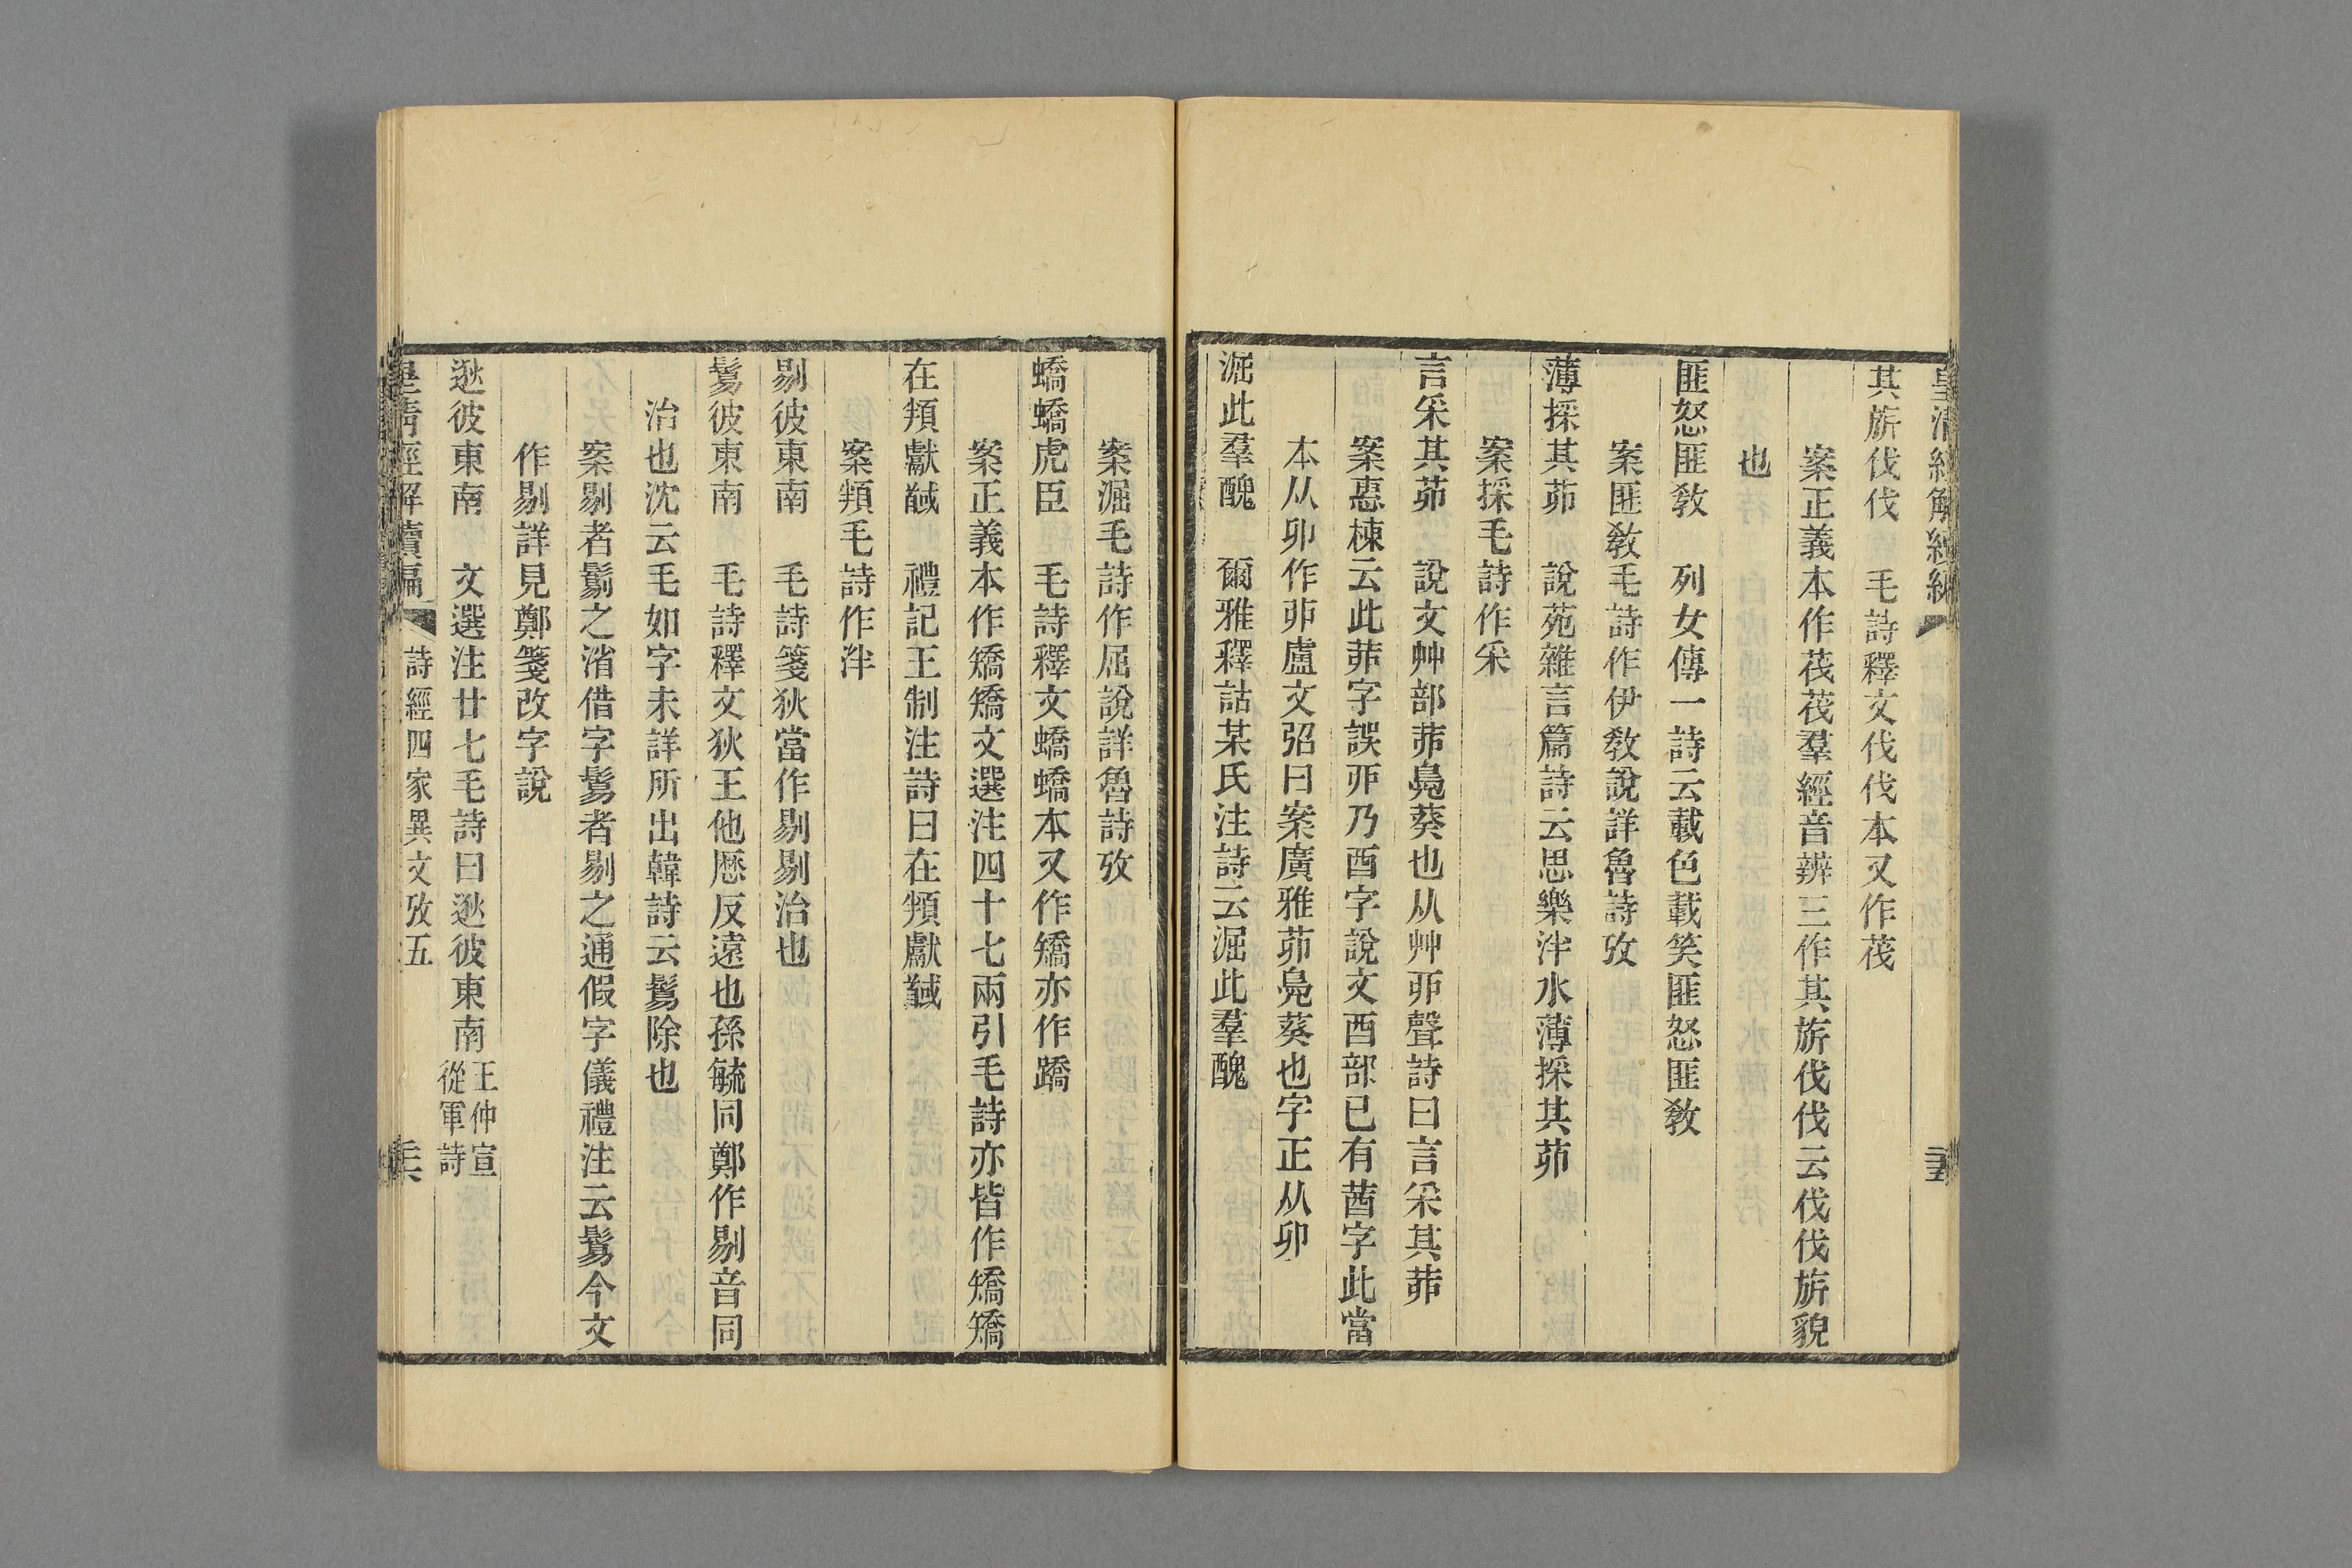 皇清經解續編
其旂伐伐　毛詩釋文伐伐本又作茷
案正義本作茷茷羣經音辨三作其旂伐伐云伐伐旂貌
也
匪怒匪敎　列女傳一詩云載色載笑匪怒匪敎
案匪敎毛詩作伊敎說詳魯詩攷
薄採其茆　說苑雜言篇詩云思樂泮水薄採其茆
案採毛詩作采
言采其茆　說文艸部茆鳧葵也从艸丣聲詩曰言采其茆
案惠棟云此茆字誤丣乃酉字說文酉部已有莤字此當
本从卯作茆盧文弨曰案廣雅茆鳧葵也字正从卯
淈此羣醜　爾雅釋詁某氏注詩云淈此羣醜
案淈毛詩作屈說詳魯詩攷
蟜蟜虎臣　毛詩釋文蟜蟜本又作矯亦作蹻
案正義本作矯矯文選注四十七兩引毛詩亦皆作矯矯
在頖獻馘　禮記王制注詩曰在頖獻馘
案頖毛詩作泮
剔彼東南　毛詩箋狄當作剔剔治也
鬄彼東南　毛詩釋文狄王他厯反遠也孫毓同鄭作剔音同
治也沈云毛如字未詳所出韓詩云鬄除也
案剔者鬀之渻借字鬄者剔之通假字儀禮注云鬄今文
作剔詳見鄭箋改字說
逖彼東南　文選注廿七毛詩曰逖彼東南王仲宣從軍詩
皇清經解續編　詩經四家異文攷五